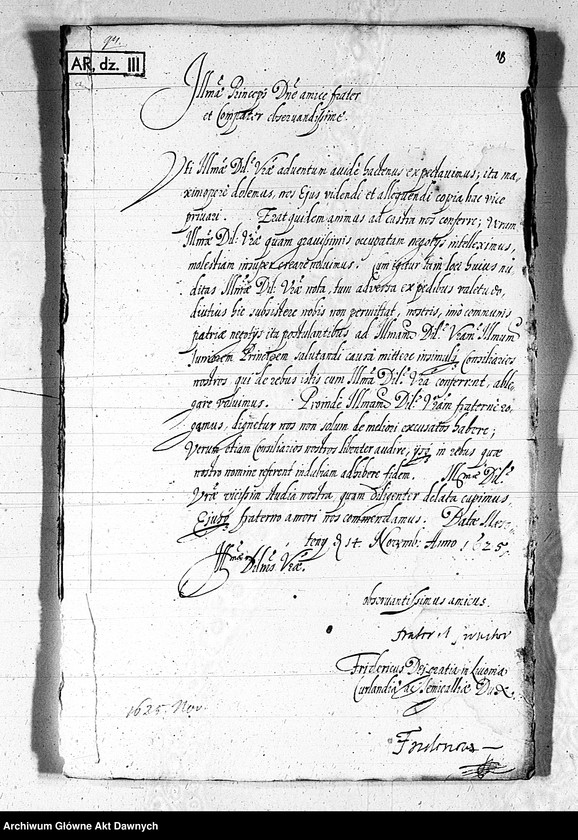 18
AR, dz. III
Illme Princeps Dne amice frater
et Compater observandissime.
Uti Illmæ Dil: Vræ adventum avidè hactenus expectavimus; ita ma,
ximoperè dolemus, nos Ejus videndi et alloquendi copia hac vice
privari. Erat quidem animus ad castra nos conferre; Verum
Illmæ Dil: Vræ quam gravissimis occupatam negotijs intelleximus,
molestiam insuper creare noluimus. Cum igitur tam loci huius nu,
ditas Illmæ Dil: Vræ nota, tum adversa ex pedibus valetudo,
diutius hic subsistere nobis non permittat, nostris, imò communis
patriæ negotijs ita postulantibus ad Illmam Dil: Vram Illmum
Principem salutandi causâ mittere Consiliarios
nostros, qui de rebus istis cum Illma Dil: Vra conferrent, able,
gare voluimus. Proinde Illmam Dil: Vram fraternè ro,
gamus, dignetur nos non solum excusatos habere;
Verum etiam Consiliarios nostros libenter audire, in rebus quæ
nostro nomine referent indubiam adhibere fidem. Illmæ Dil:
Vræ vicissim studia nostra, quam diligenter delata cupimus,
fraterno amori nos commendamus. Datæ
14. Novemb: Anno 1625.
Illmæ Dilnis Vræ.
observantissimus amicus.
frater et
Fridericus Dei gratia in Livonia
Curlandiæ et Semigalliæ Dux.
1625. Nov.
Archiwum Główne Akt Dawnych